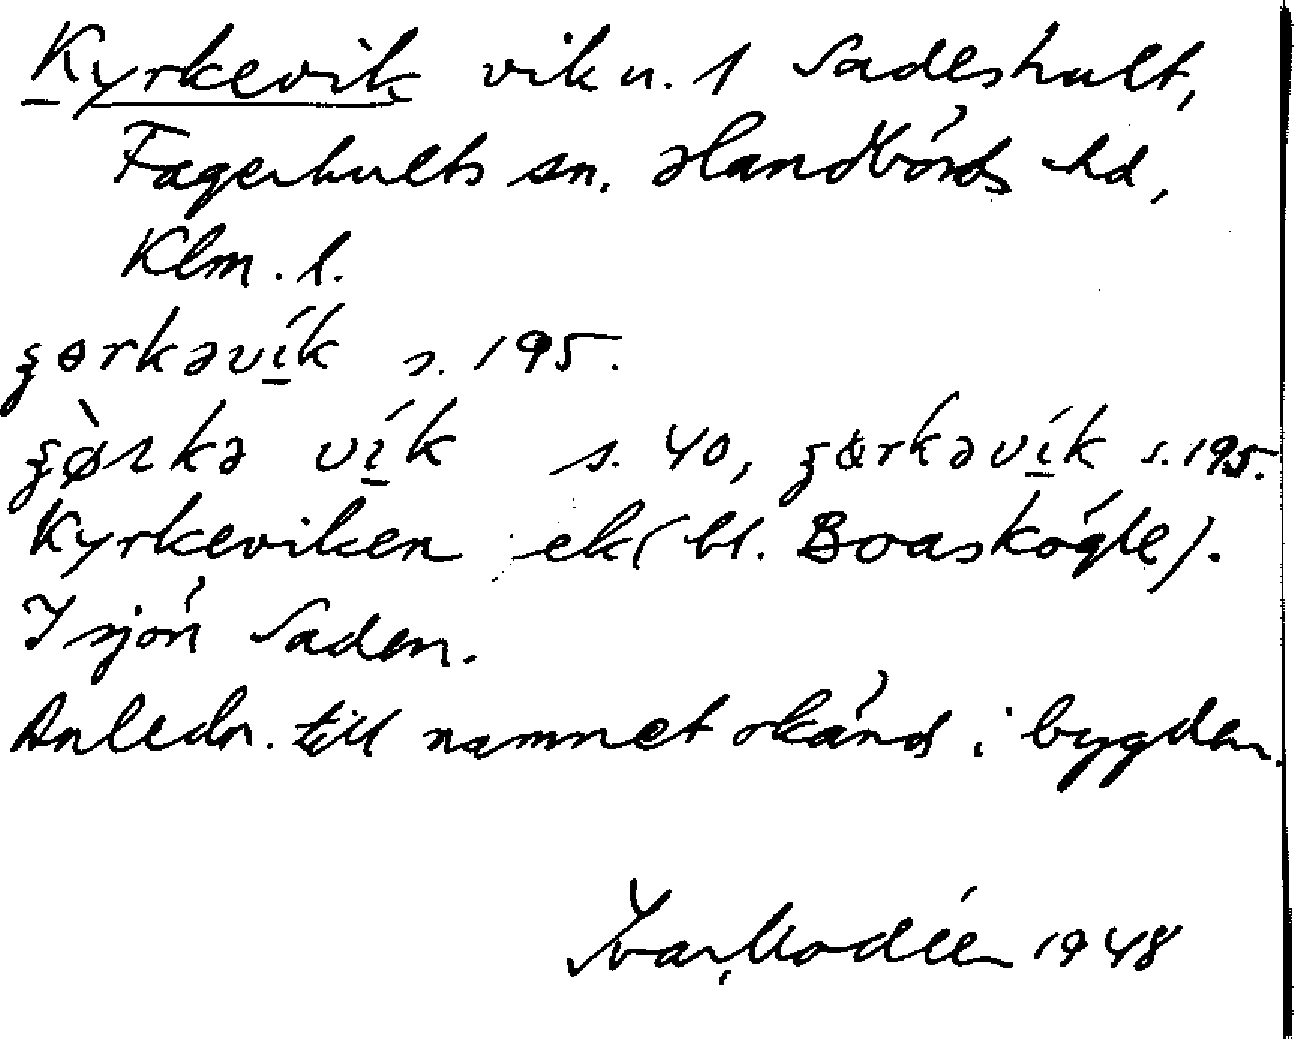 Kyrkevik vik u. 1 Sadeshult,
Fagerhults sn. Handbörds hd,
Klm. l.
s. 195.
s. 40, s. 195.
Kyrkeviken ek (bl. Boaskögle).
I sjön Saden.
Anledn. till namnet okänd i bygden.
Ivar Modéer 1948